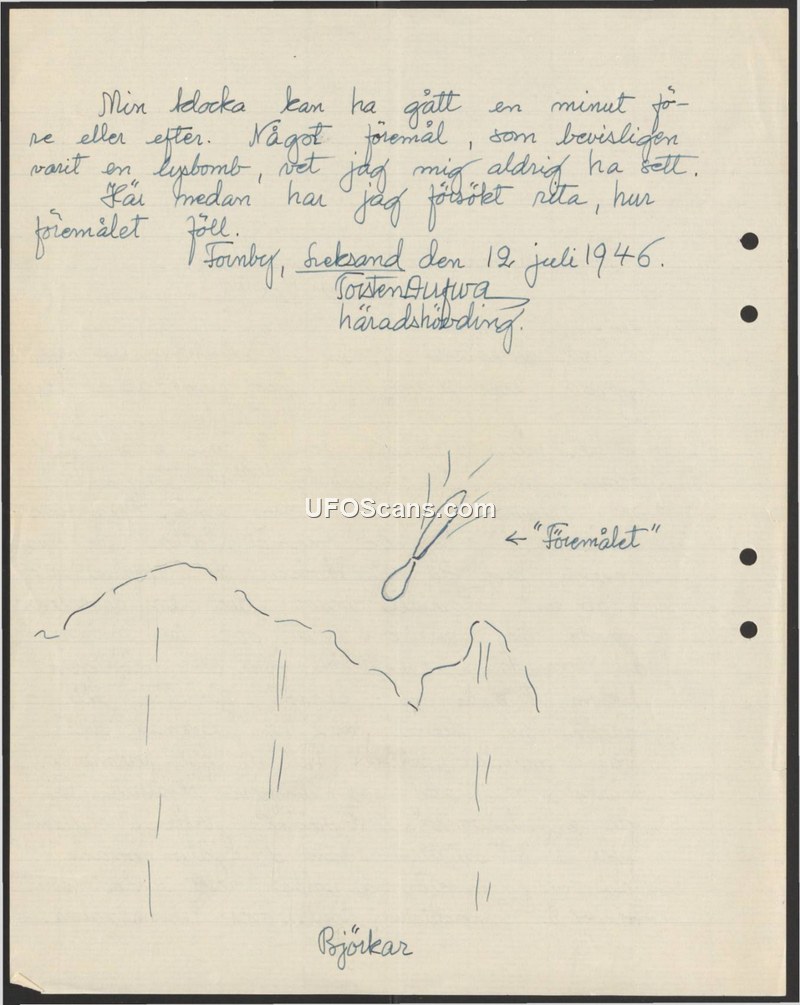 Min klocka kan ha gått en minut fö-
re eller efter. Något föremål, som bevisligen
varit en lysbomb, vet jag mig aldrig ha sett.
Här nedan har jag försökt rita, hur
föremålet föll.
Fornby, Leksand den 12 juli 1946.
Torsten
häradshövding.
UFOScans.com
← "Föremålet"
Björkar